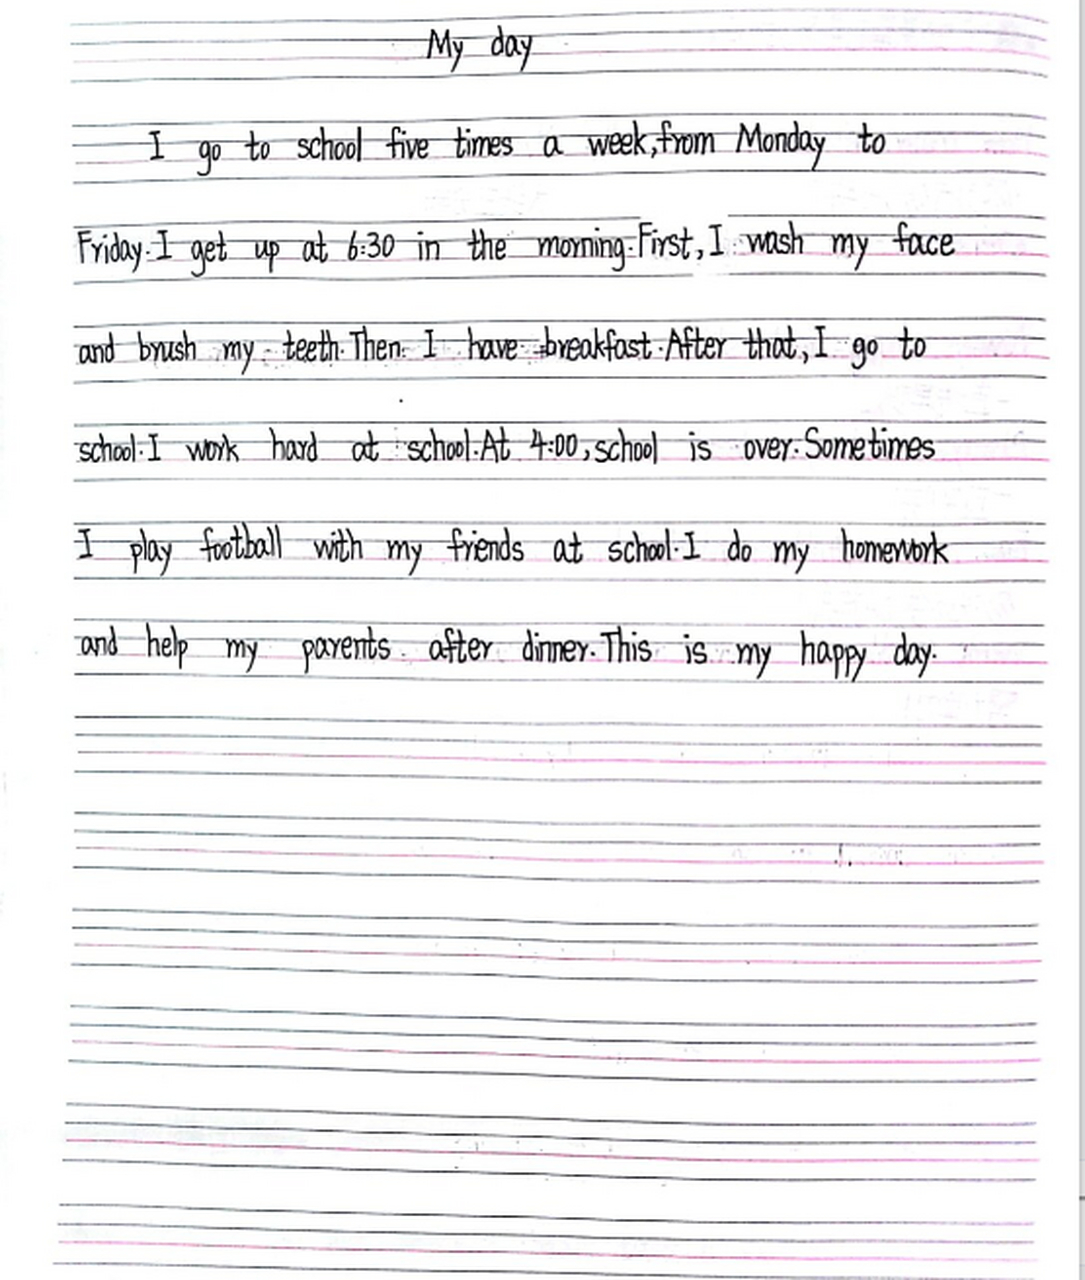 My day
I go to school five times a week,from Monday to
Friday.I get up at 6:30 in the morning.First,I wash my face
and brush my teeth.Then I have breakfast.After that,I go to
school.I work hard at school.At 4:00,school is over.Sometimes
I play football with my friends at school.I do my homework
and help my parents after dinner.This is my happy day.